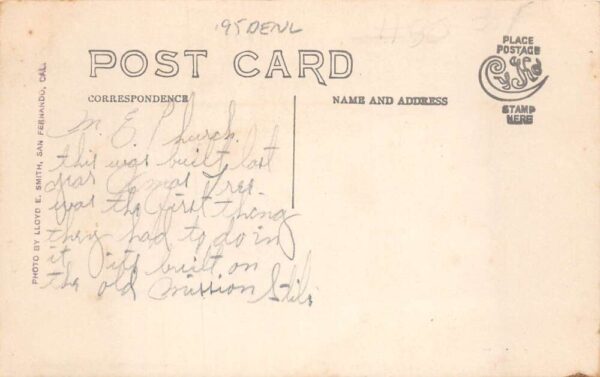 '95 DENL
POST CARD
CORRESPONDENCE
NAME AND ADDRESS
PLACE
POSTAGE
STAMP
HERE
PHOTO BY LLOYD E. SMITH, SAN FERNANDO, CAL.
M. E. Church
this was built last
year Xmas Tree
was the first thing
they had to do in
it its built on
the old Mission Stile